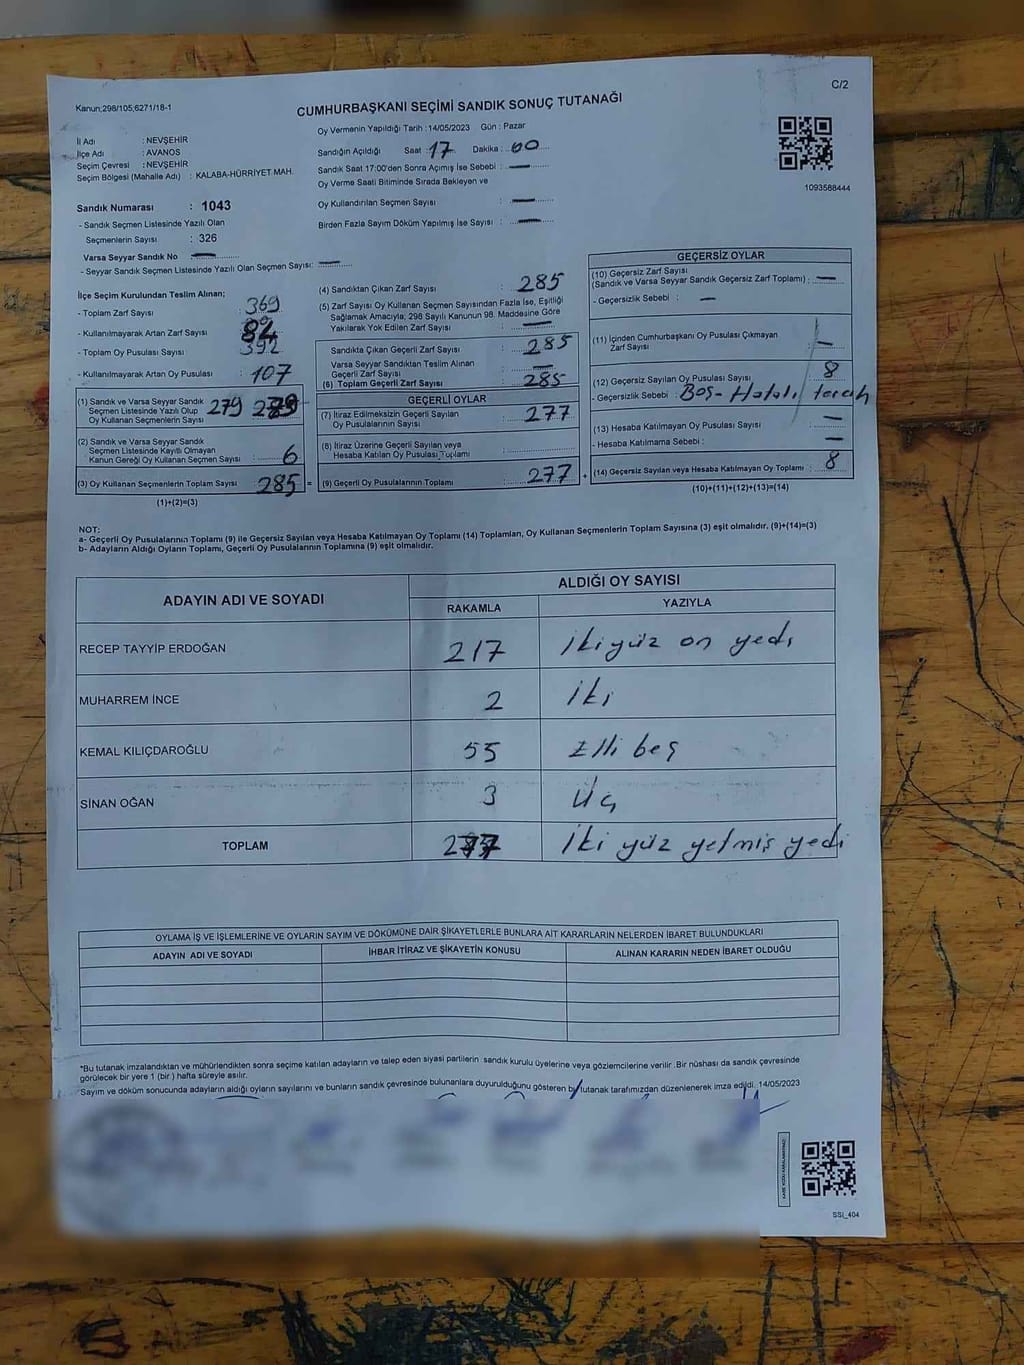 Kanun;298/105;6271/18-1
C/2
CUMHURBAŞKANI SEÇİMİ SANDIK SONUÇ TUTANAĞI
İl Adı : NEVŞEHİR
İlçe Adı : AVANOS
Seçim Çevresi : NEVŞEHİR
Seçim Bölgesi (Mahalle Adı) : KALABA-HÜRRİYET MAH.
Oy Vermenin Yapıldığı Tarih :14/05/2023 Gün : Pazar
Sandığın Açıldığı Saat : 17 Dakika : 00
Sandık Saat 17:00'den Sonra Açımış İse Sebebi : —
Oy Verme Saati Bitiminde Sırada Bekleyen ve
Oy Kullandırılan Seçmen Sayısı : —
Birden Fazla Sayım Döküm Yapılmış İse Sayısı : —
1093588444
Sandık Numarası : 1043
- Sandık Seçmen Listesinde Yazılı Olan
Seçmenlerin Sayısı : 326
Varsa Seyyar Sandık No —
- Seyyar Sandık Seçmen Listesinde Yazılı Olan Seçmen Sayısı: —
İlçe Seçim Kurulundan Teslim Alınan;
- Toplam Zarf Sayısı : 369
- Kullanılmayarak Artan Zarf Sayısı : 84
- Toplam Oy Pusulası Sayısı : 392
- Kullanılmayarak Artan Oy Pusulası : 107
(1) Sandık ve Varsa Seyyar Sandık
Seçmen Listesinde Yazılı Olup
Oy Kullanan Seçmenlerin Sayısı 279
(2) Sandık ve Varsa Seyyar Sandık
Seçmen Listesinde Kayıtlı Olmayan
Kanun Gereği Oy Kullanan Seçmen Sayısı : 6
(3) Oy Kullanan Seçmenlerin Toplam Sayısı : 285 =
(1)+(2)=(3)
(4) Sandıktan Çıkan Zarf Sayısı : 285
(5) Zarf Sayısı Oy Kullanan Seçmen Sayısından Fazla İse, Eşitliği
Sağlamak Amacıyla; 298 Sayılı Kanunun 98. Maddesine Göre
Yakılarak Yok Edilen Zarf Sayısı : —
Sandıkta Çıkan Geçerli Zarf Sayısı : 285
Varsa Seyyar Sandıktan Teslim Alınan
Geçerli Zarf Sayısı : —
(6) Toplam Geçerli Zarf Sayısı : 285
GEÇERLİ OYLAR
(7) İtiraz Edilmeksizin Geçerli Sayılan
Oy Pusulalarının Sayısı : 277
(8) İtiraz Üzerine Geçerli Sayılan veya
Hesaba Katılan Oy Pusulası Toplamı :
(9) Geçerli Oy Pusulalarının Toplamı : 277 +
GEÇERSİZ OYLAR
(10) Geçersiz Zarf Sayısı
(Sandık ve Varsa Seyyar Sandık Geçersiz Zarf Toplamı) : —
- Geçersizlik Sebebi : —
(11) İçinden Cumhurbaşkanı Oy Pusulası Çıkmayan
Zarf Sayısı : —
(12) Geçersiz Sayılan Oy Pusulası Sayısı : 8
- Geçersizlik Sebebi : Boş- Hatalı tercih
(13) Hesaba Katılmayan Oy Pusulası Sayısı : —
- Hesaba Katılmama Sebebi : —
(14) Geçersiz Sayılan veya Hesaba Katılmayan Oy Toplamı : 8
(10)+(11)+(12)+(13)=(14)
NOT:
a- Geçerli Oy Pusulalarının Toplamı (9) ile Geçersiz Sayılan veya Hesaba Katılmayan Oy Toplamı (14) Toplamları, Oy Kullanan Seçmenlerin Toplam Sayısına (3) eşit olmalıdır. (9)+(14)=(3)
b- Adayların Aldığı Oyların Toplamı, Geçerli Oy Pusulalarının Toplamına (9) eşit olmalıdır.
ADAYIN ADI VE SOYADI ALDIĞI OY SAYISI
RAKAMLA YAZIYLA
RECEP TAYYİP ERDOĞAN 217 İkiyüz on yedi
MUHARREM İNCE 2 İki
KEMAL KILIÇDAROĞLU 55 Elli beş
SİNAN OĞAN 3 Üç
TOPLAM 277 İki yüz yetmiş yedi
OYLAMA İŞ VE İŞLEMLERİNE VE OYLARIN SAYIM VE DÖKÜMÜNE DAİR ŞİKAYETLERLE BUNLARA AİT KARARLARIN NELERDEN İBARET BULUNDUKLARI
ADAYIN ADI VE SOYADI İHBAR İTİRAZ VE ŞİKAYETİN KONUSU ALINAN KARARIN NEDEN İBARET OLDUĞU
*Bu tutanak imzalandıktan ve mühürlendikten sonra seçime katılan adayların ve talep eden siyasi partilerin sandık kurulu üyelerine veya gözlemcilerine verilir. Bir nüshası da sandık çevresinde
görülecek bir yere 1 (bir ) hafta süreyle asılır.
Sayım ve döküm sonucunda adayların aldığı oyların sayılarını ve bunların sandık çevresinde bulunanlara duyurulduğunu gösteren bu tutanak tarafımızdan düzenlenerek imza edildi. 14/05/2023
SSI_404